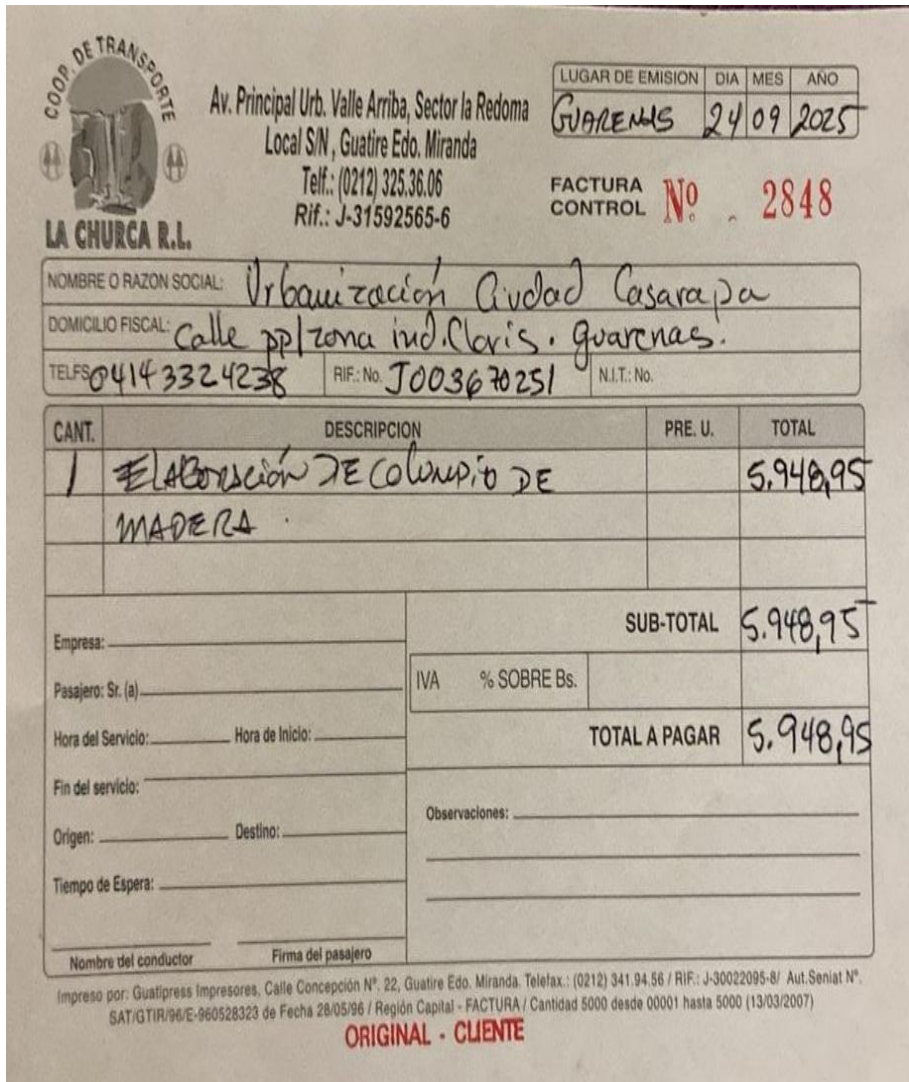 COOP. DE TRANSPORTE
LA CHURCA R.L.
Av. Principal Urb. Valle Arriba, Sector la Redoma
Local S/N, Guatire Edo. Miranda
Telf.: (0212) 325.36.06
Rif.: J-31592565-6
LUGAR DE EMISION DIA MES AÑO
GUARENAS 24 09 2025
FACTURA CONTROL Nº 2848
NOMBRE O RAZON SOCIAL: Urbanización Ciudad Casarapa
DOMICILIO FISCAL: Calle pp/zona ind. Cloris. guarenas.
TELFS 04143324238 RIF.: No. J003670251 N.I.T.: No.
CANT. DESCRIPCION PRE. U. TOTAL
1 ELABORACIÓN DE COLUMPIO DE 5.948,95
MADERA.
SUB-TOTAL 5.948,95
IVA % SOBRE Bs.
TOTAL A PAGAR 5.948,95
Empresa:
Pasajero: Sr. (a)
Hora del Servicio: Hora de Inicio:
Fin del servicio:
Origen: Destino:
Tiempo de Espera:
Nombre del conductor Firma del pasajero
Observaciones:
Impreso por: Guatipress Impresores, Calle Concepción Nº. 22, Guatire Edo. Miranda. Telefax.: (0212) 341.94.56 / RIF.: J-30022095-8/ Aut.Seniat Nº.
SAT/GTIR/96/E-960528323 de Fecha 28/05/96 / Región Capital - FACTURA / Cantidad 5000 desde 00001 hasta 5000 (13/03/2007)
ORIGINAL - CLIENTE